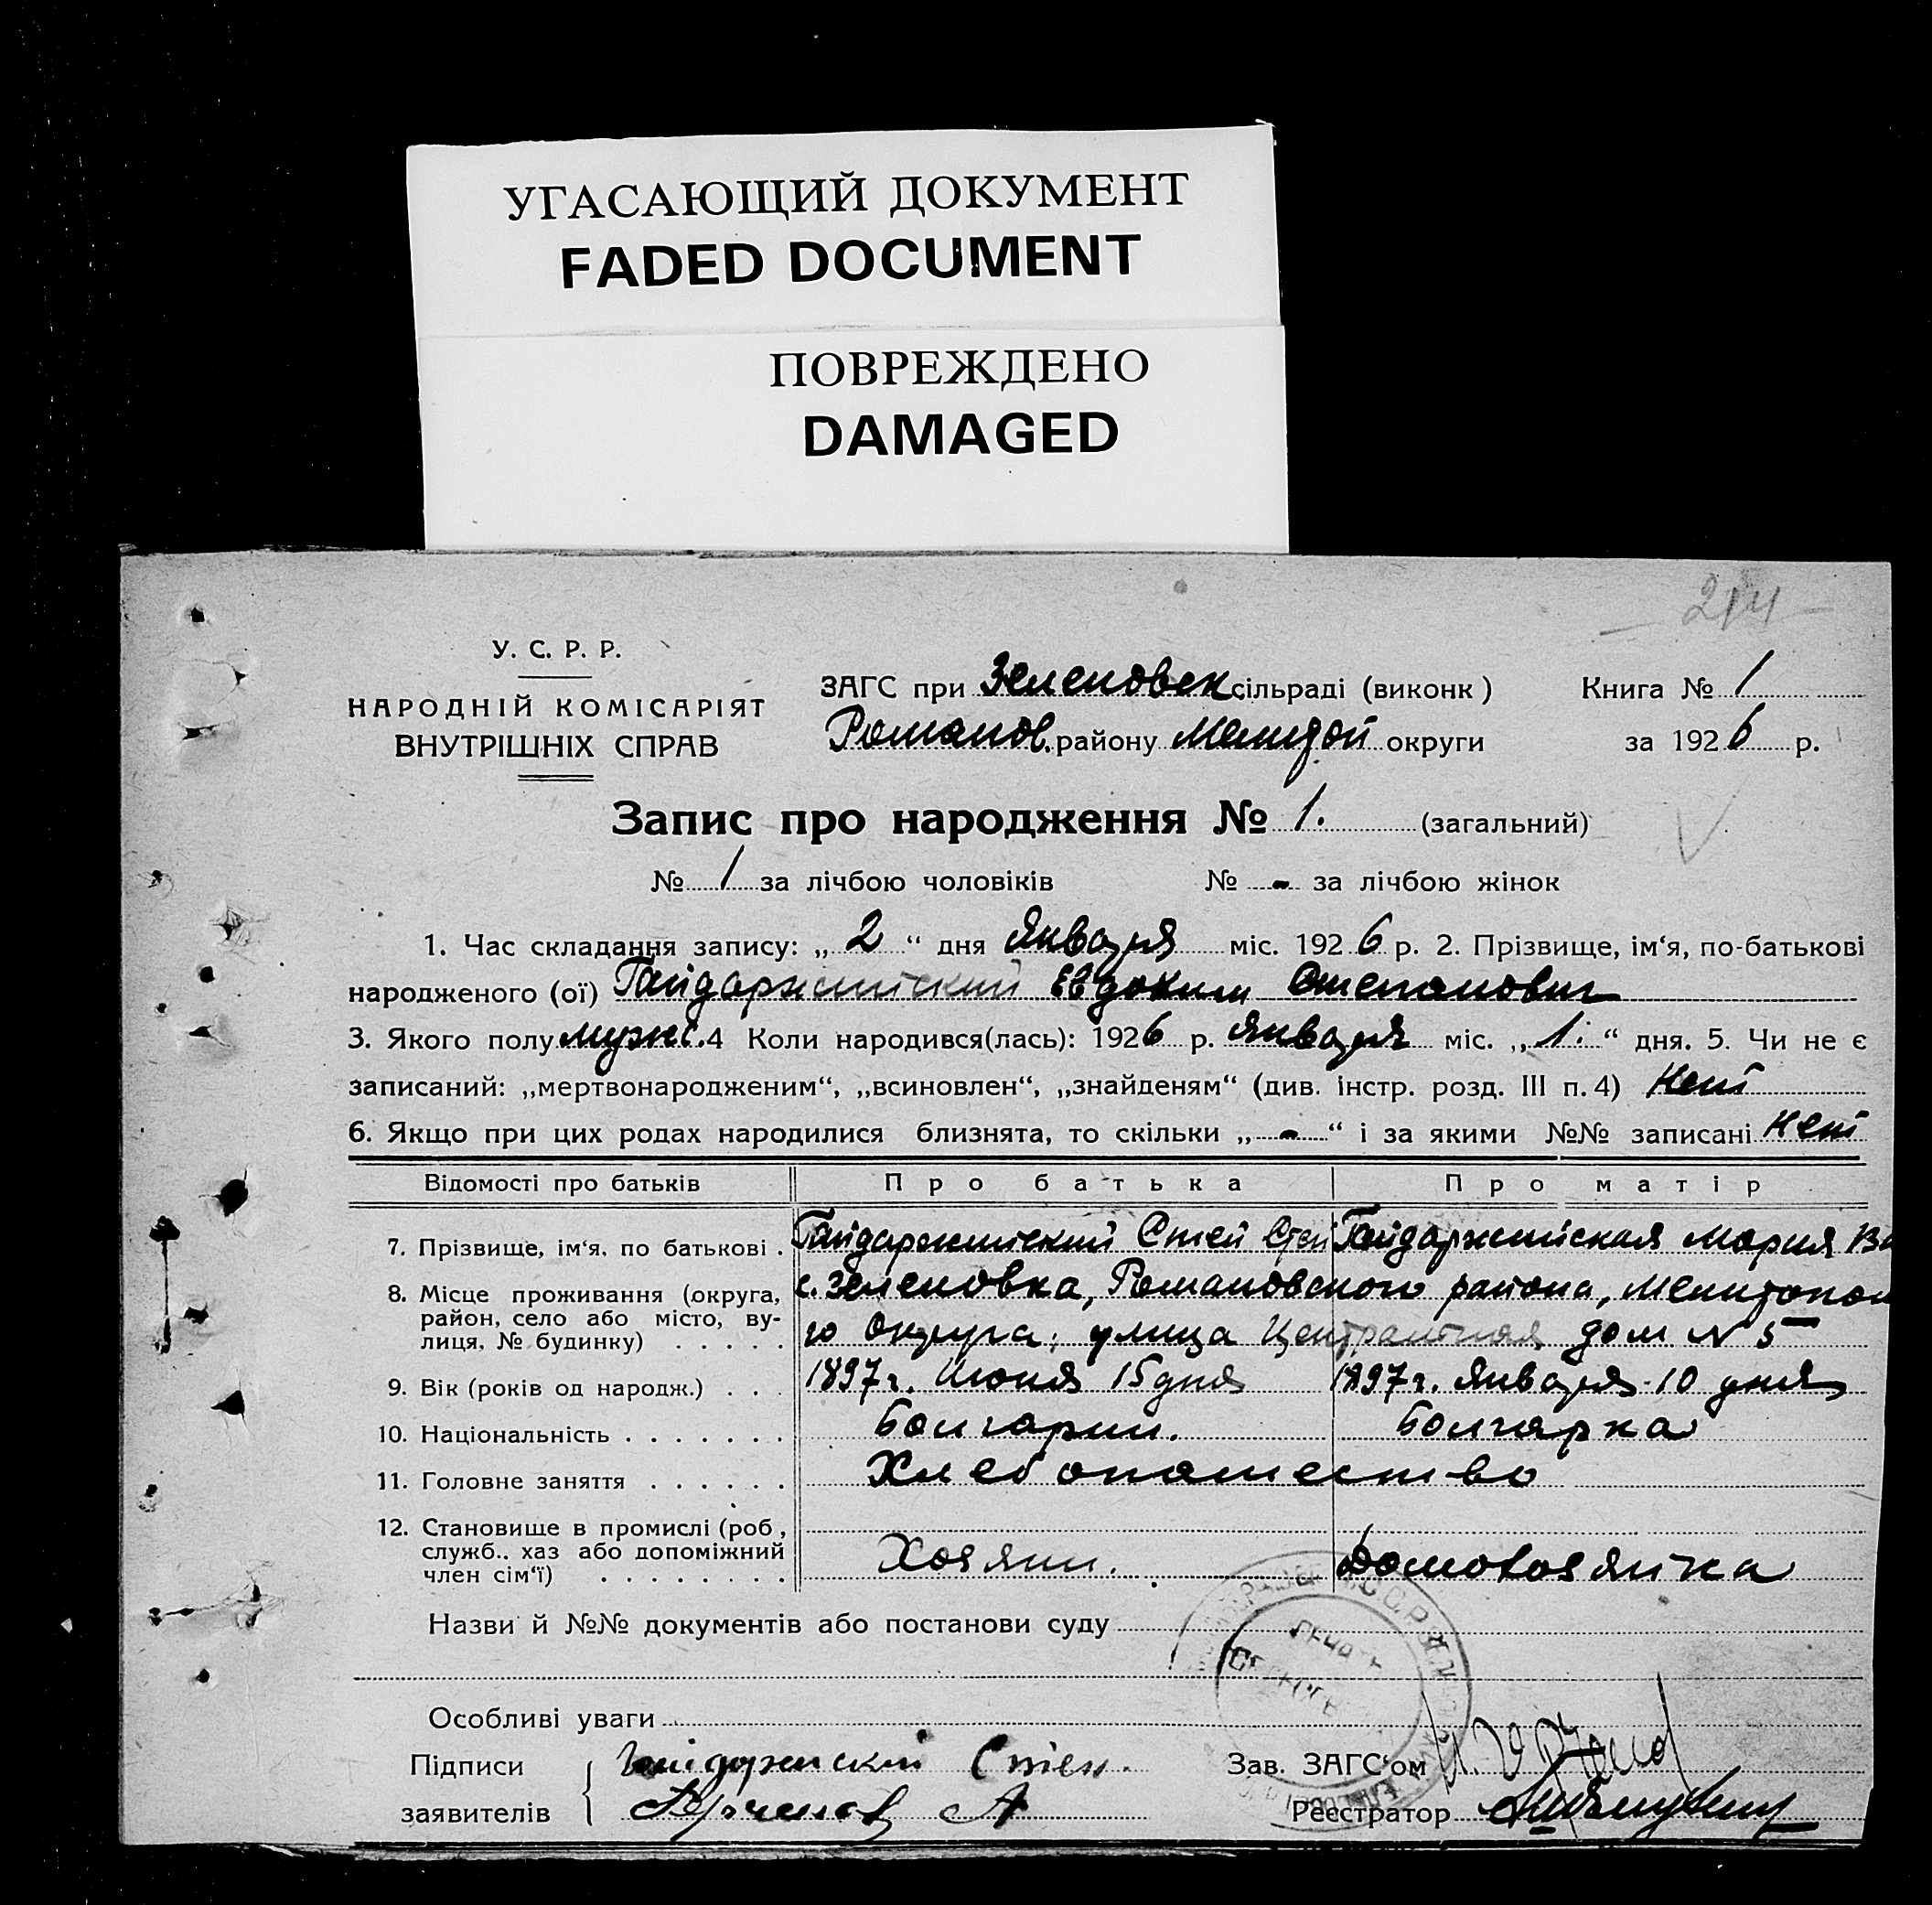 УГАСАЮЩИЙ ДОКУМЕНТ
FADED DOCUMENT
ПОВРЕЖДЕНО
DAMAGED
У. С. Р. Р.
НАРОДНІЙ КОМІСАРІЯТ
ВНУТРІШНІХ СПРАВ
ЗАГС при Зеленовск сільраді (виконк)
Романов. району Мелитой округи
Книга № 1
за 1926 р.
Запис про народження № 1. (загальний)
№ 1 за лічбою чоловіків № - за лічбою жінок
1. Час складання запису: „ 2 “ дня Января міс. 1926 р. 2. Прізвище, ім‘я, по-батькові
народженого (ої) Гайдаржийский Евдоким Степанович
3. Якого полу мужс. 4 Коли народився(лась): 1926 р. Января міс. „ 1. “ дня. 5. Чи не є
записаний: „мертвонародженим“, „всиновлен“, „знайденям“ (див. інстр. розд. III п. 4) Нет
6. Якщо при цих родах народилися близнята, то скільки „ - “ і за якими №№ записані Нет
Відомості про батьків Про батька Про матір
7. Прізвище, ім‘я, по батькові . Гайдаржийский Степ Степ Гайдаржийская Мария Ва
8. Місце проживання (округа, с. Зеленовка, Романовского района, Мелитопол
район, село або місто, ву-
лиця, № будинку) . . . . . го Округа, улица Центральная дом № 5
9. Вік (років од народж.) . . . 1897 г. Июня 15 дня 1897 г. Января 10 дня
10. Національність . . . . . . . Болгарин. Болгарка
11. Головне заняття . . . . . . Хлебопашество
12. Становище в промислі (роб,
служб., хаз або допоміжний Хозяин. Домохозяйка
член сім‘ї) . . . . . . . .
Назви й №№ документів або постанови суду
ПЕЧАТЬ
Особливі уваги
Підписи Гайдаржиский Степ. Зав. ЗАГС‘ом
заявителів А Реєстратор